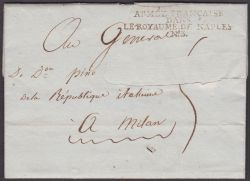 ARMÉE FRANÇAISE
DANS
LE ROYAUME DE NAPLES
Nº3.
Au Général
De Don Pino
de la République italienne
A Milan
5